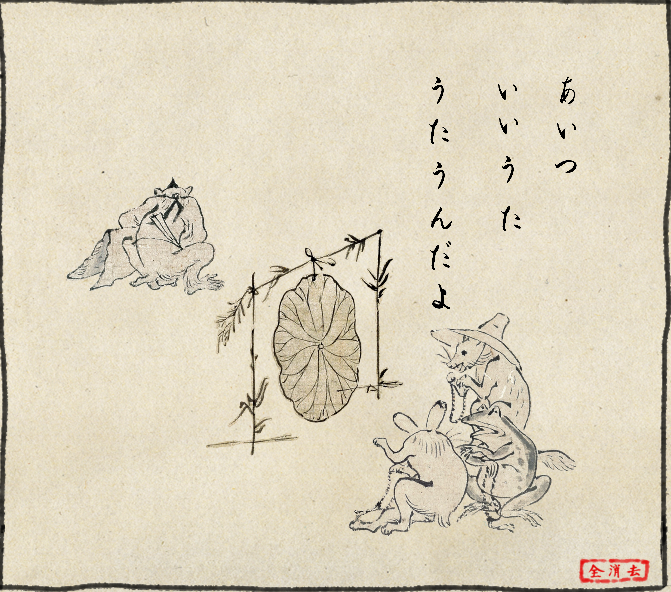 あいつ
いいうた
うたうんだよ
全消去